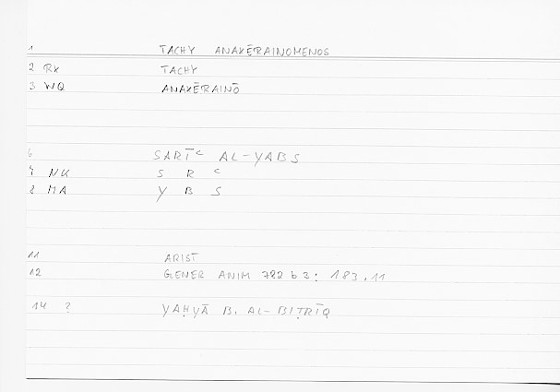 1 TACHY ANAXĒRAINOMENOS
2 RX TACHY
3 WQ ANAXĒRAINŌ
6 SARĪᶜ AL-YABS
7 NU S R ᶜ
8 MA Y B S
11 ARIST
12 GENER ANIM 782 b 3 : 183.11
14 ? YAḤYĀ B. AL-BIṬRĪQ